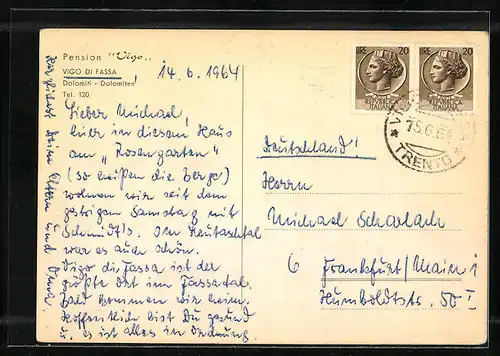 Pension "Vigo"
VIGO DI FASSA
Dolomiti - Dolomiten
Tel. 120
14.6.1964
Lieber Michael,
hier in diesem Haus
am "Rosengarten"
(so heißen die Berge)
wohnen wir seit dem
gestrigen Samstag mit
Schmidt's. Im Leutaschtal
war es auch schön.
Vigo di Fassa ist der
größte Ort im Fassatal.
Bald kommen wir heim.
Hoffentlich bist Du gesund
u. es ist alles in Ordnung
Herzlichst Deine Eltern und
20
REPVBBLICA
ITALIANA
20
REPVBBLICA
ITALIANA
15.6.64
TRENTO
Deutschland!
Herrn
Michael Scharlach
6 Frankfurt/Main 1
Humboldtstr. 50 I